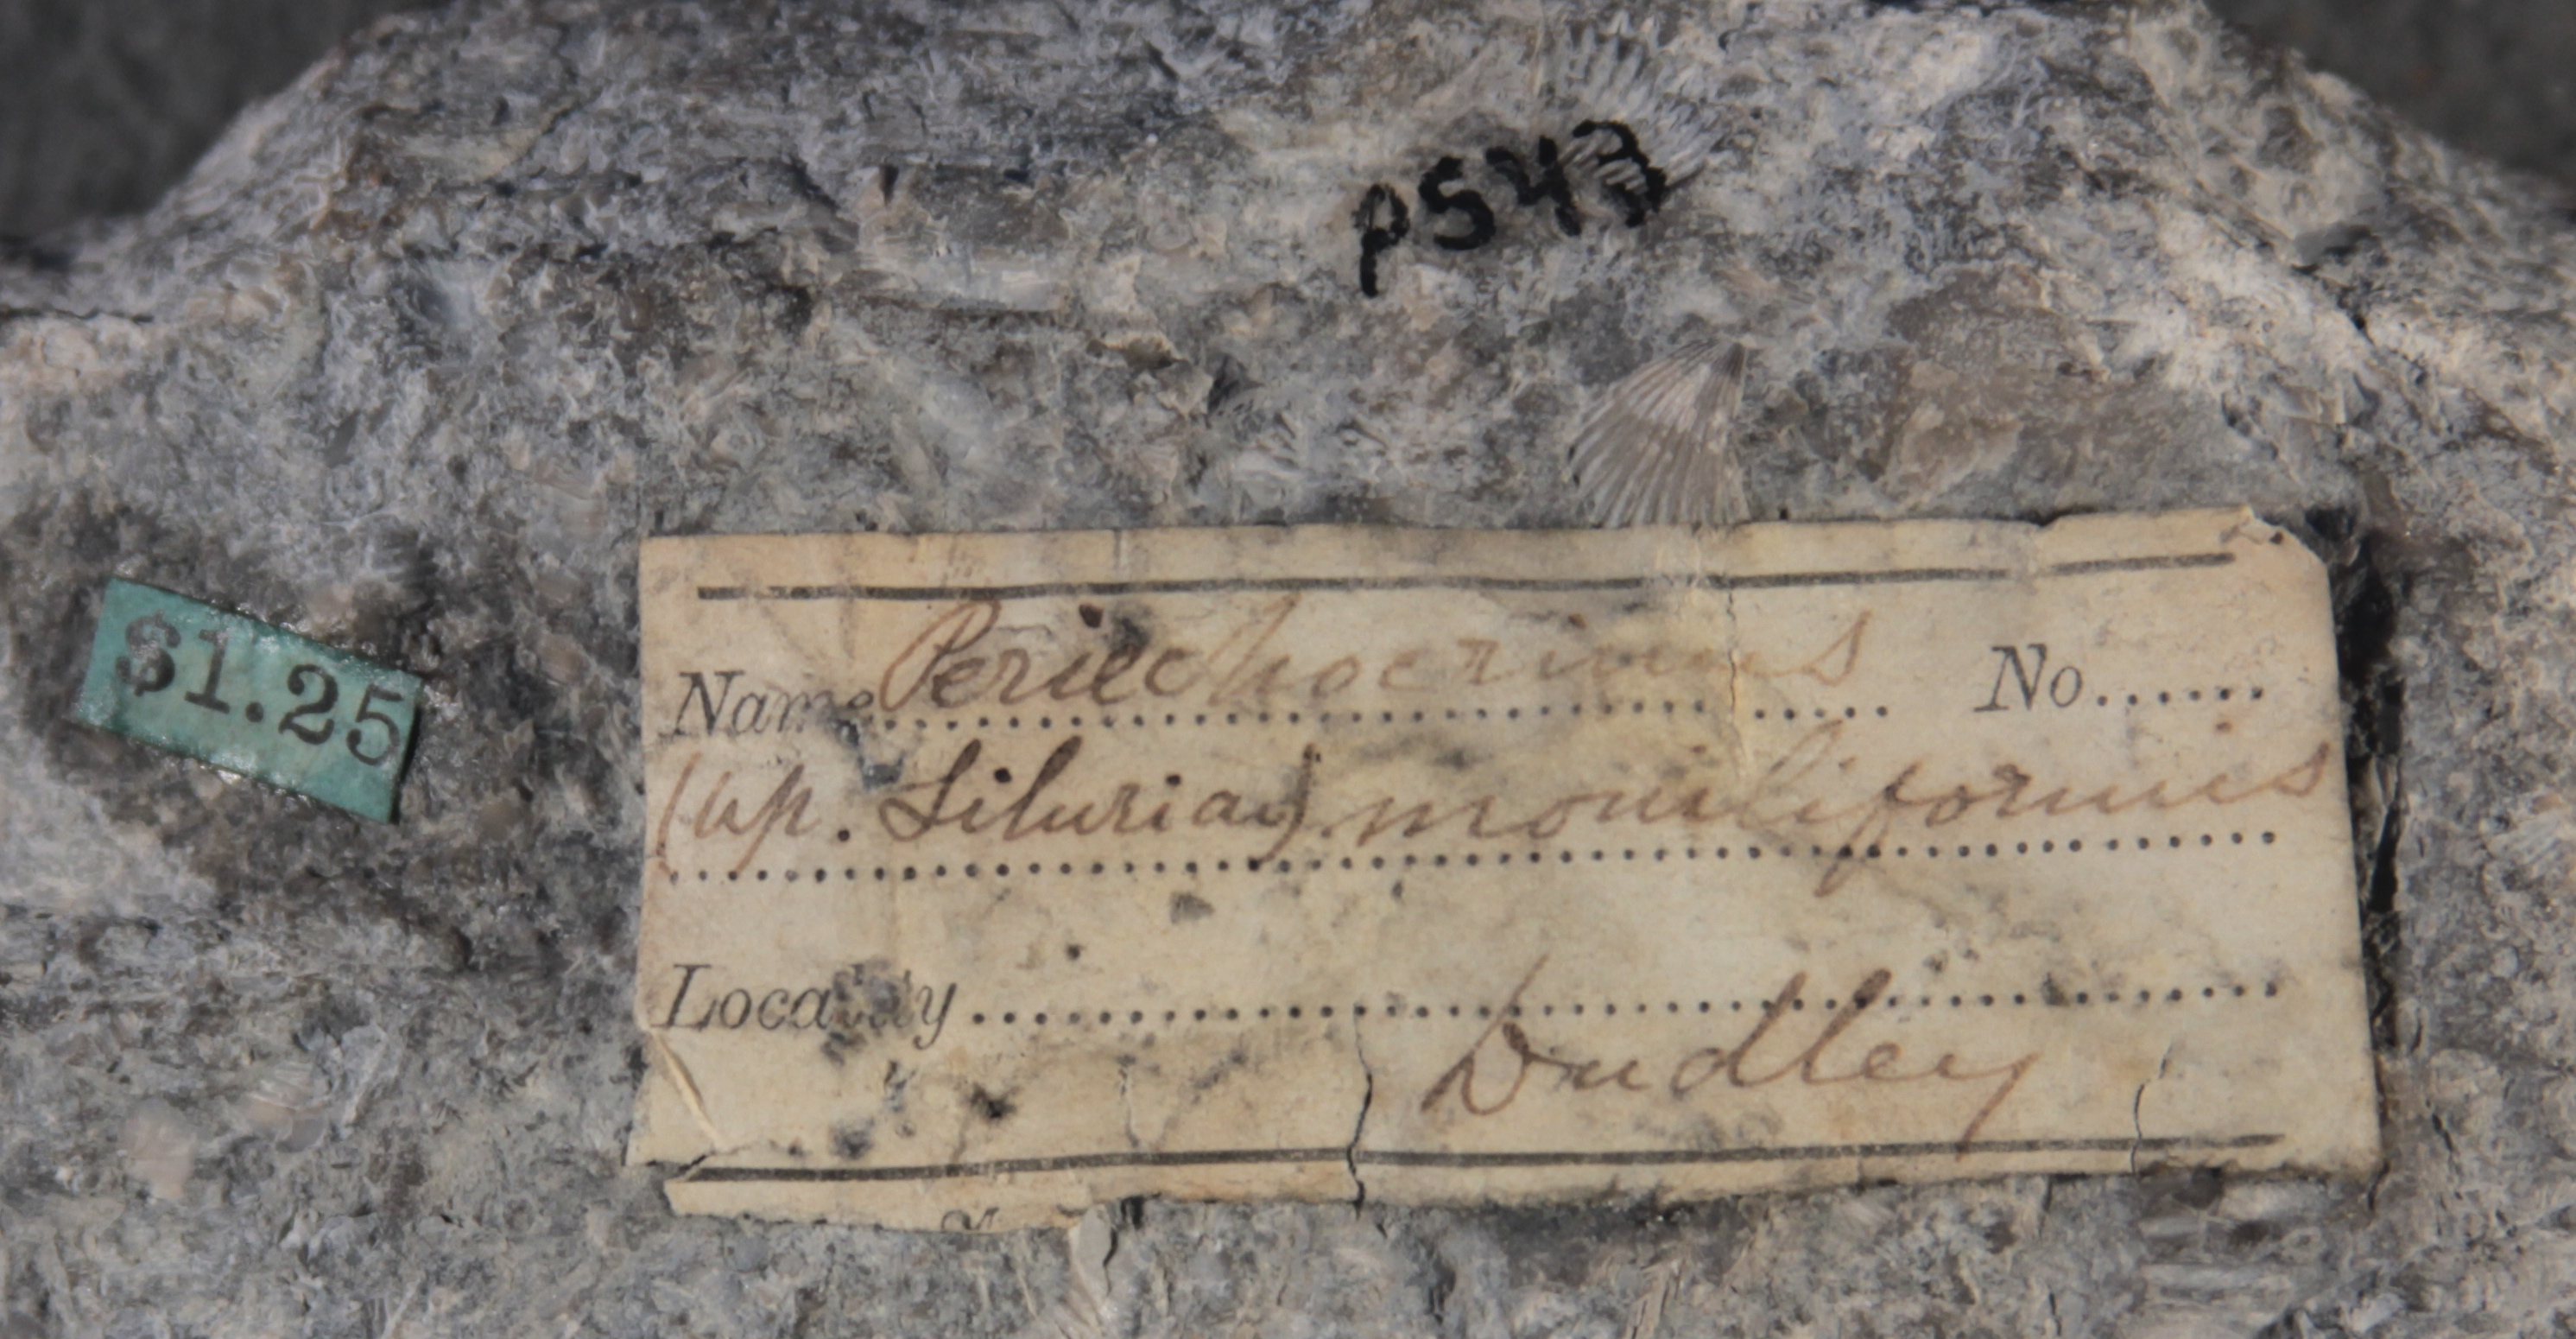 P543
$1.25
Name Periechocrinus No......
(Up. Silurian) moniliformis
Locality
Dudley